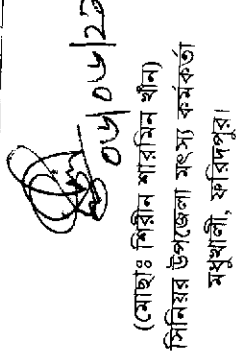 (মোছাঃ শিরীন শারমিন খাঁন)
সিনিয়র উপজেলা মৎস্য কর্মকর্তা
মধুখালী, ফরিদপুর।